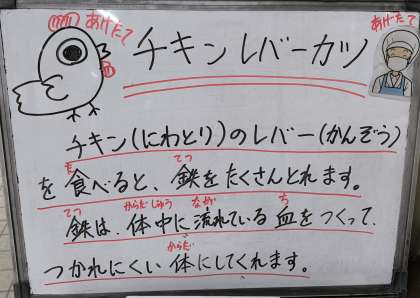 あげたて
あげたて
チキンレバーカツ
チキン(にわとり)のレバー(かんぞう)
た てつ
を食べると、鉄をたくさんとれます。
てつ からだじゅう なが ち
鉄は、体中に流れている血をつくって、
からだ
つかれにくい体にしてくれます。